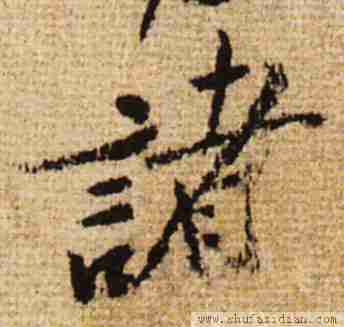 諸
www.shufazidian.com